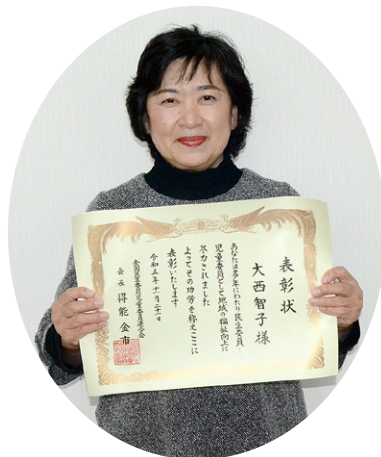 表彰状
大西智子様
あなたは多年にわたり民生委員・
児童委員として地域の福祉向上に
尽力されました
よってその功労を称えここに
表彰いたします
令和五年十一月二十一日
全国民生委員児童委員連合会
会長 得能金市